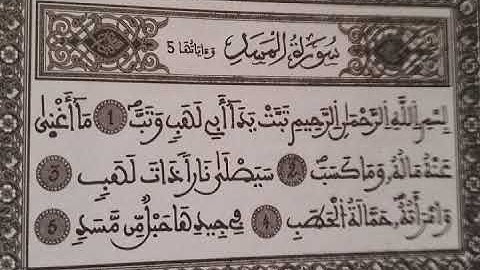 سُورَةُ الْمَسَدِ وَءَايَاتُهَا 5
بِسْمِ اِللَّهِ اِلرَّحْمَٰنِ اِلرَّحِيمِ تَبَّتْ يَدَا أَبِي لَهَبٍ وَتَبَّ 1 مَا أَغْنَىٰ
عَنْهُ مَالُهُ وَمَا كَسَبَ 2 سَيَصْلَىٰ نَارًا ذَاتَ لَهَبٍ 3
وَامْرَأَتُهُ حَمَّالَةُ الْحَطَبِ 4 فِي جِيدِهَا حَبْلٌ مِّن مَّسَدٍ 5